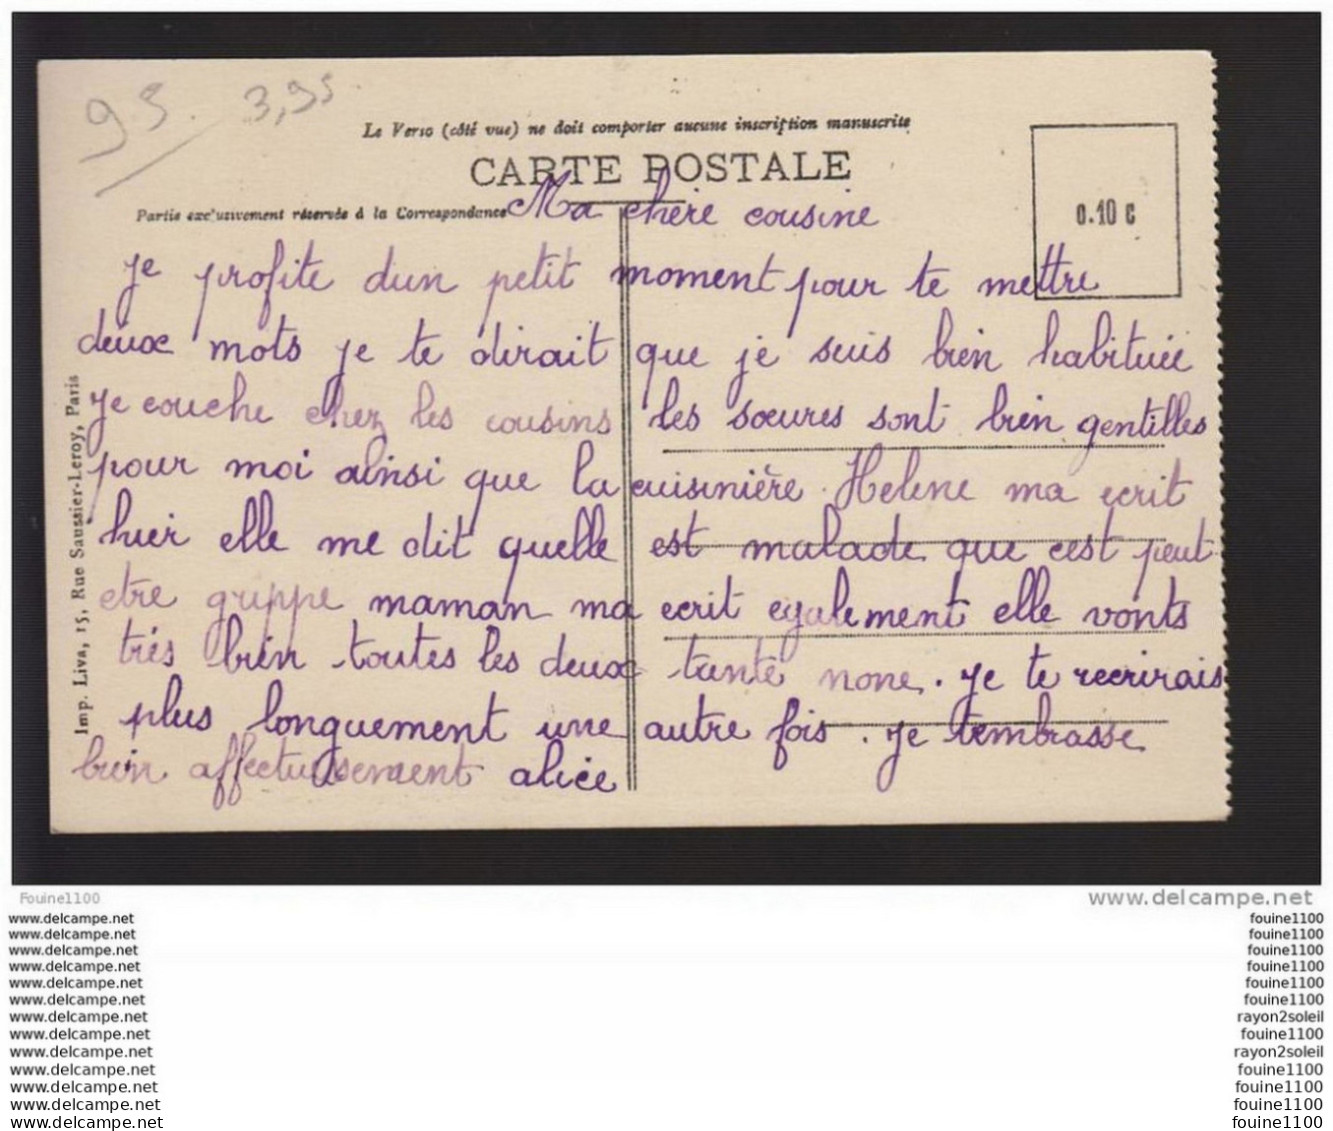 95. 3,95
Le Verso (côté vue) ne doit comporter aucune inscription manuscrite
CARTE POSTALE
Partie exclusivement réservée à la Correspondance
0.10 c
Ma chère cousine
Je profite dun petit moment pour te mettre
deux mots je te dirait que je suis bien habituée
Je couche chez les cousins les sœures sont bien gentilles
pour moi ainsi que la cuisinière. Helene ma ecrit
hier elle me dit quelle est malade que cest peut
etre grippe maman ma ecrit egalement elle vonts
trés bien toutes les deux tante none. Je te recrirais
plus longuement une autre fois. Je tembrasse
bien affectueusement alice
Imp. Liva, 15, Rue Saussier-Leroy, Paris
Fouine1100
www.delcampe.net
www.delcampe.net fouine1100
www.delcampe.net fouine1100
www.delcampe.net fouine1100
www.delcampe.net fouine1100
www.delcampe.net fouine1100
www.delcampe.net fouine1100
www.delcampe.net rayon2soleil
www.delcampe.net fouine1100
www.delcampe.net rayon2soleil
www.delcampe.net fouine1100
www.delcampe.net fouine1100
www.delcampe.net fouine1100
www.delcampe.net fouine1100